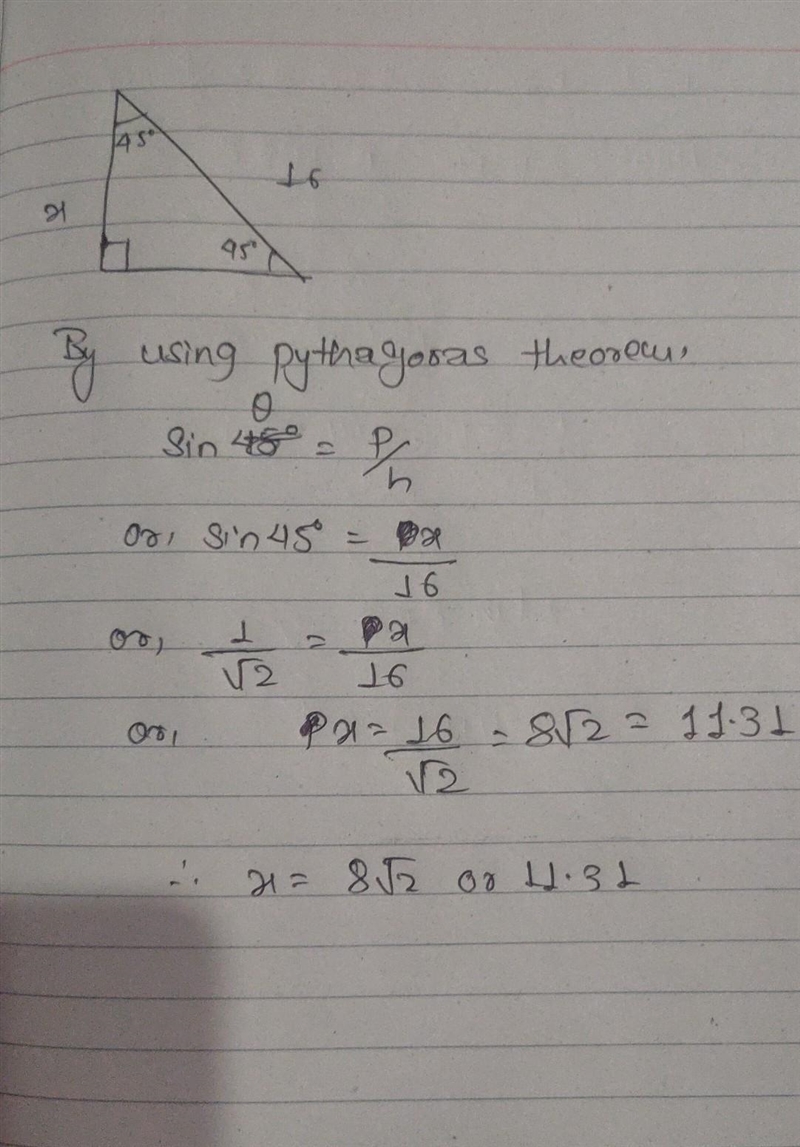 45°
16
x
45°
By using pythagoras theorem,
θ
Sin 45° = P/h
or, sin 45° = x/16
or, 1/√2 = x/16
or, x = 16/√2 = 8√2 = 11.31
∴ x = 8√2 or 11.31